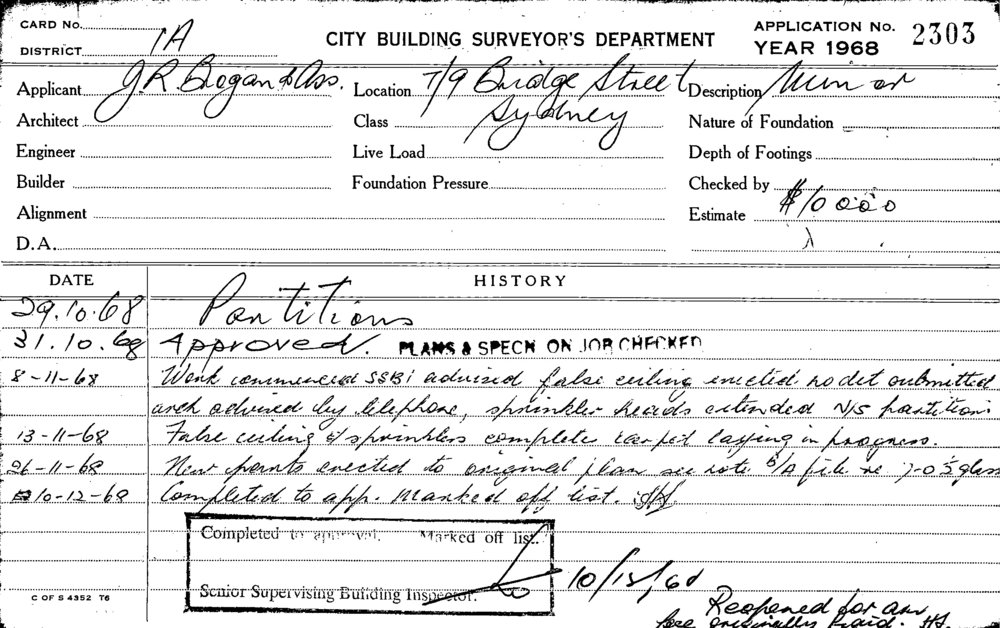 CARD No.
DISTRICT 1A
CITY BUILDING SURVEYOR'S DEPARTMENT
APPLICATION No. 2303
YEAR 1968
Applicant J.R. Brogan & Ass.
Location 7/9 Bridge Street
Sydney
Description Minor
Architect
Class
Nature of Foundation
Engineer
Live Load
Depth of Footings
Builder
Foundation Pressure
Checked by
Alignment
Estimate $10000
D.A.
DATE HISTORY
29.10.68 Partitions
31.10.68 Approved. PLANS & SPECN ON JOB CHECKED
8-11-68 Work commenced SSBI advised false ceiling erected no det submitted
arch advised by telephone, sprinkler heads extended N/S partitions
13-11-68 False ceiling & sprinklers complete carpet laying in progress.
26-11-68 New partns erected to original plan see note B/A file re glass
10-12-68 Completed to app. Marked off list.
Completed to approval. Marked off list.
Senior Supervising Building Inspector.
10/12/68
C OF S 4352 76
Reopened for
fee originally paid.